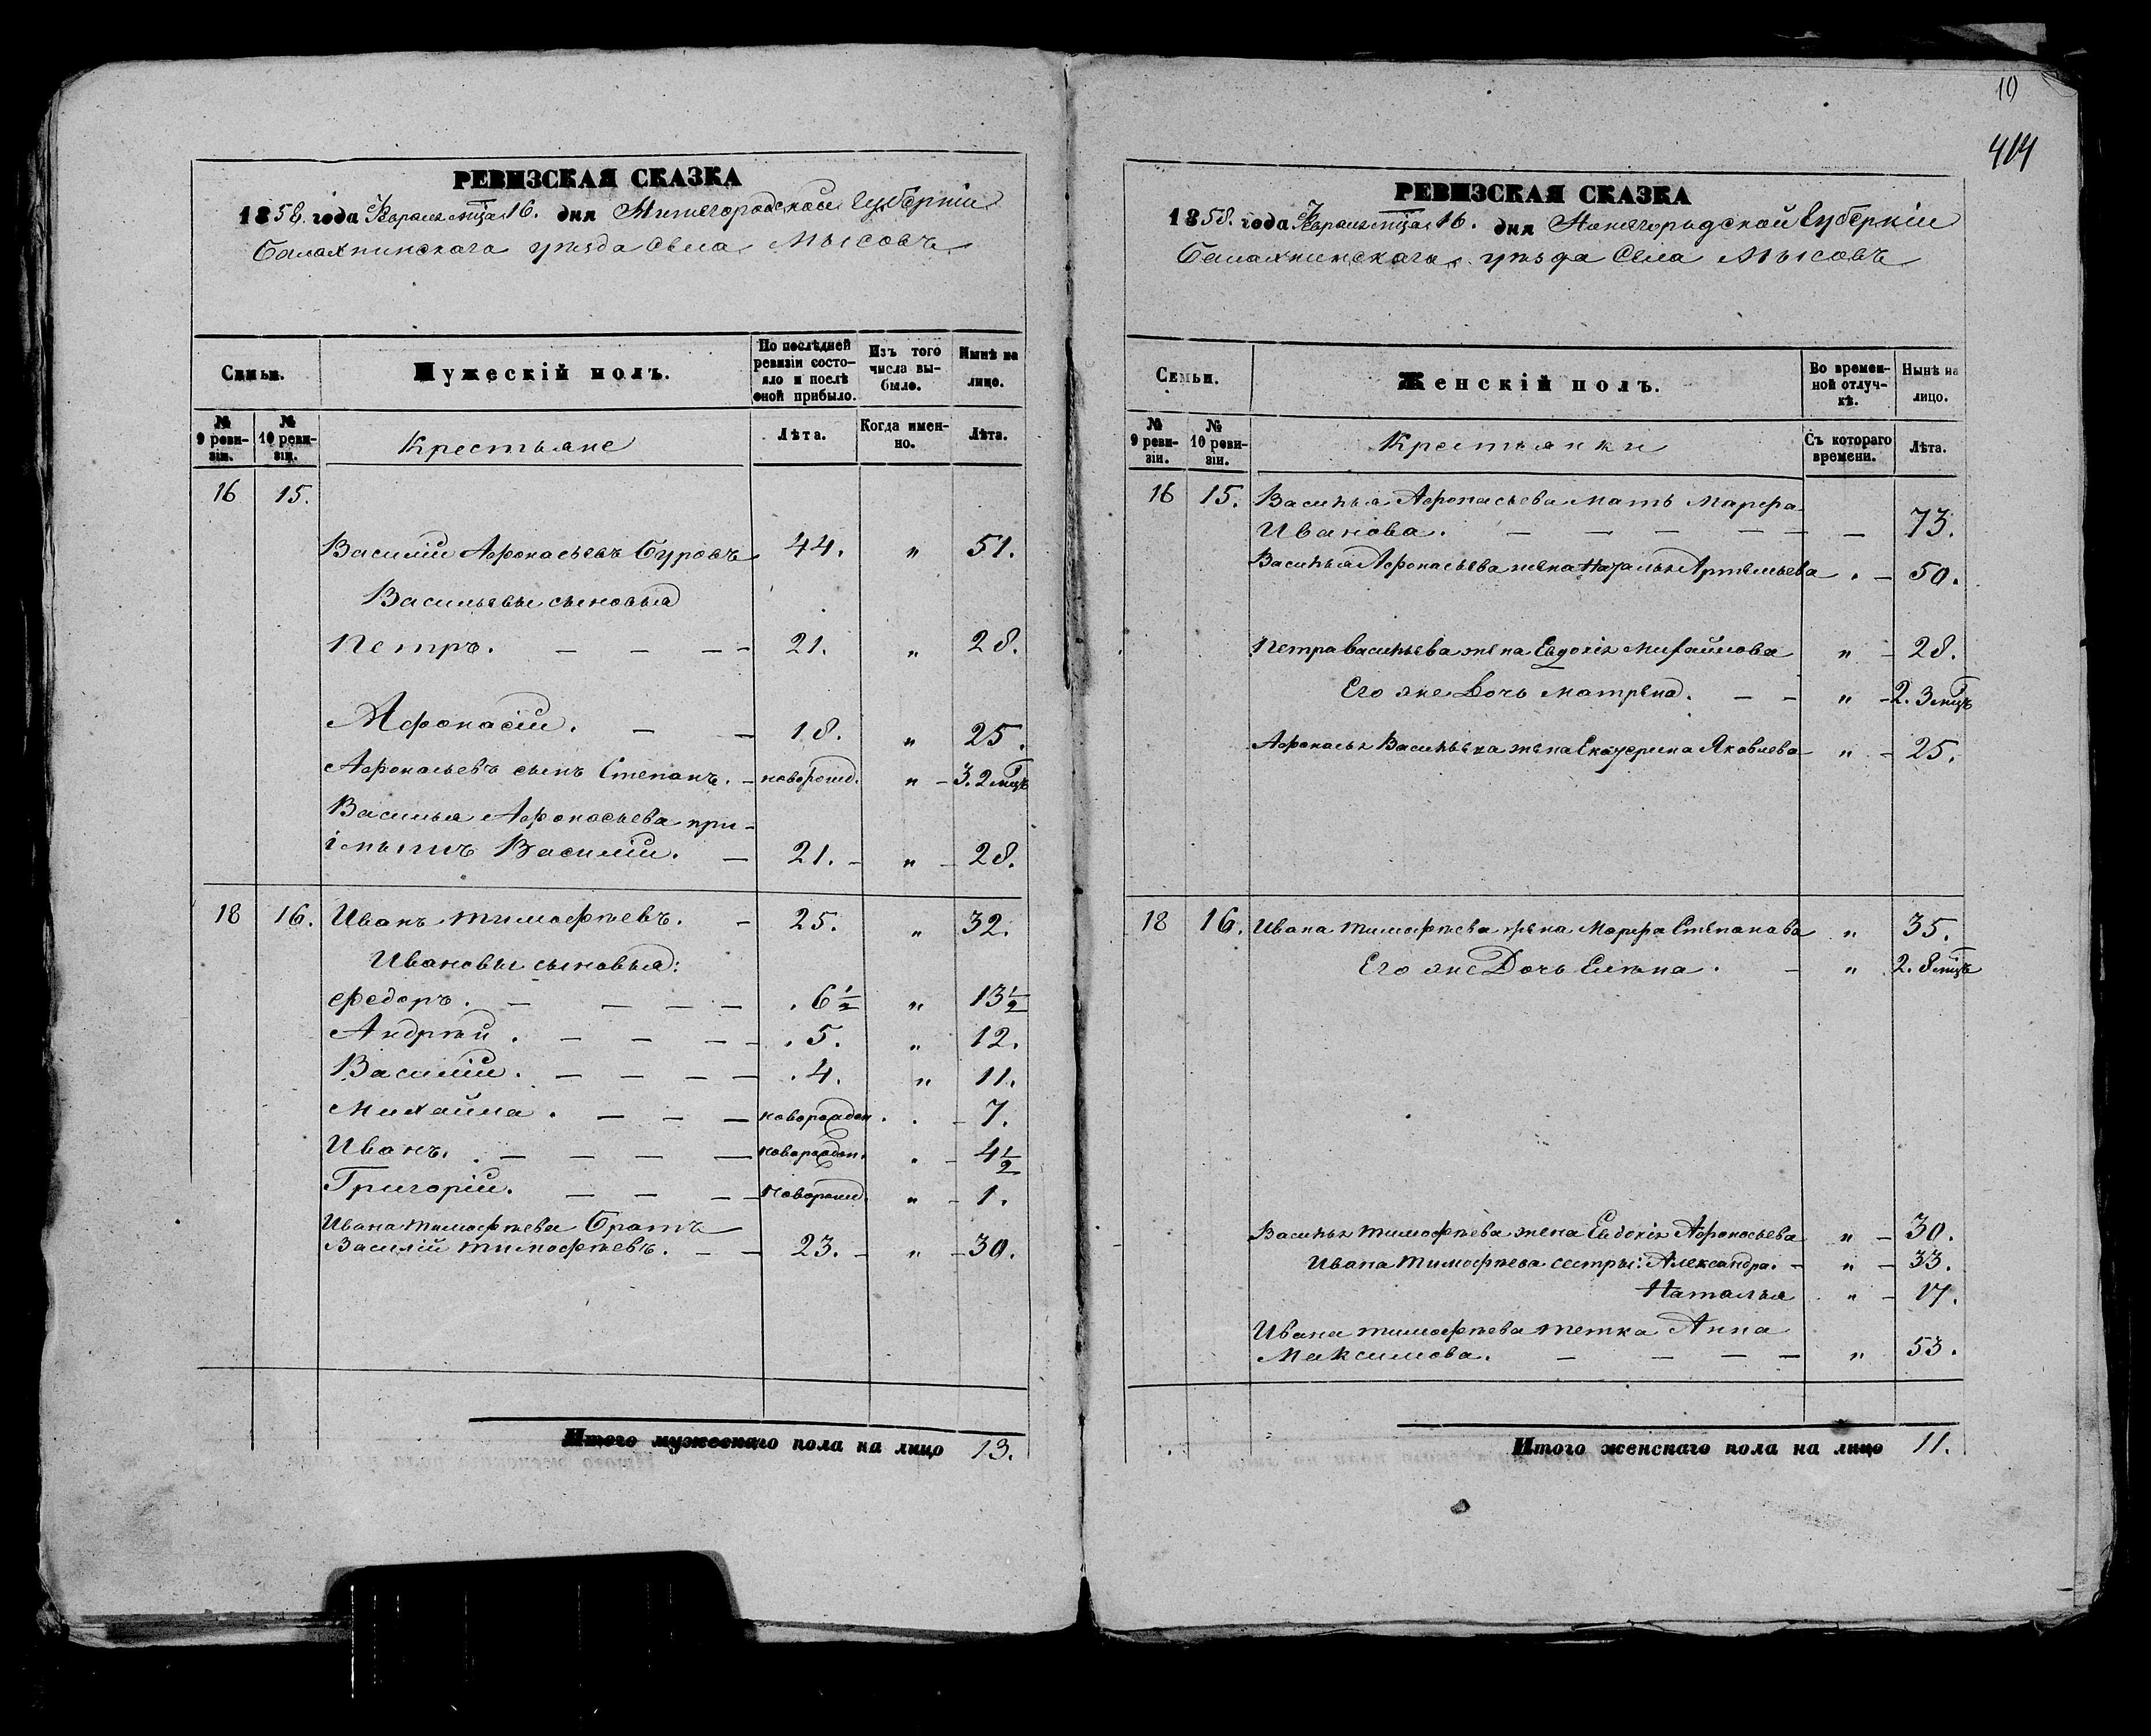 РЕВИЗСКАЯ СКАЗКА
1858. года Февраля мца 16. дня Нижегородской Губерніи
Балахнинскаго уѣзда Села Мысовъ
Семьи.
Мужескій полъ.
По послѣдней ревизіи состояло и послѣ оной прибыло.
Изъ того числа выбыло.
Нынѣ на лицо.
№ 9 ревизіи.
№ 10 ревизіи.
Крестьяне
Лѣта.
Когда именно.
Лѣта.
16 15.
Василій Афонасьевъ Буровъ 44. " 51.
Васильевы сыновья
Петръ. — — — - 21. " 28.
Афонасій. — — 18. " 25.
Афонасьевъ сынъ Степанъ. - новорожд. " - 3. 2 мцъ
Василья Афонасьева при-
іомышъ Василій. — 21. - " - 28.
18 16. Иванъ Тимофѣевъ. - 25. " 32.
Ивановы сыновья:
Федоръ. — — — — 6 1/2 " 13 1/2
Андрѣй. — — — - 5. " 12.
Василій. — — — — 4. " 11.
Михайла. — — — новорожден. - 7.
Иванъ. — — — — новорожден. - 4 1/2
Григорій. — — — новорожд. " - 1.
Ивана Тимофѣева Братъ
Василій Тимофѣевъ. — — 23. - " - 30.
Итого мужескаго пола на лицо 13.
10
414
РЕВИЗСКАЯ СКАЗКА
1858. года Февраля мца 16. дня Нижегородской Губерніи
Балахнинскаго уѣзда Села Мысовъ
Семьи.
Женскій полъ.
Во временной отлучкѣ.
Нынѣ на лицо.
№ 9 ревизіи.
№ 10 ревизіи.
Крестьянки
Съ котораго времени.
Лѣта.
16 15. Василья Афонасьева мать Марфа
Иванова. — — — — — — 73.
Василья Афонасьева жена Наталья Артемьева . - 50.
Петра Васильева жена Евдокія Михайлова " - 28.
Его же Дочь Матрена. — - " - 2. 3 мцъ
Афонасья Васильева жена Екатерина Яковлева - " - 25.
18 16. Ивана Тимофѣева жена Марфа Степанава " 35.
Его же Дочь Елѣна. - " 2. 8 мцъ
Василья Тимофѣева жена Евдокія Афонасьева " - 30.
Ивана Тимофѣева сестры: Александра. - " - 33.
Наталья " - 17.
Ивана Тимофѣева тетка Анна
Максимова. — — — — " 53.
Итого женскаго пола на лицо 11.